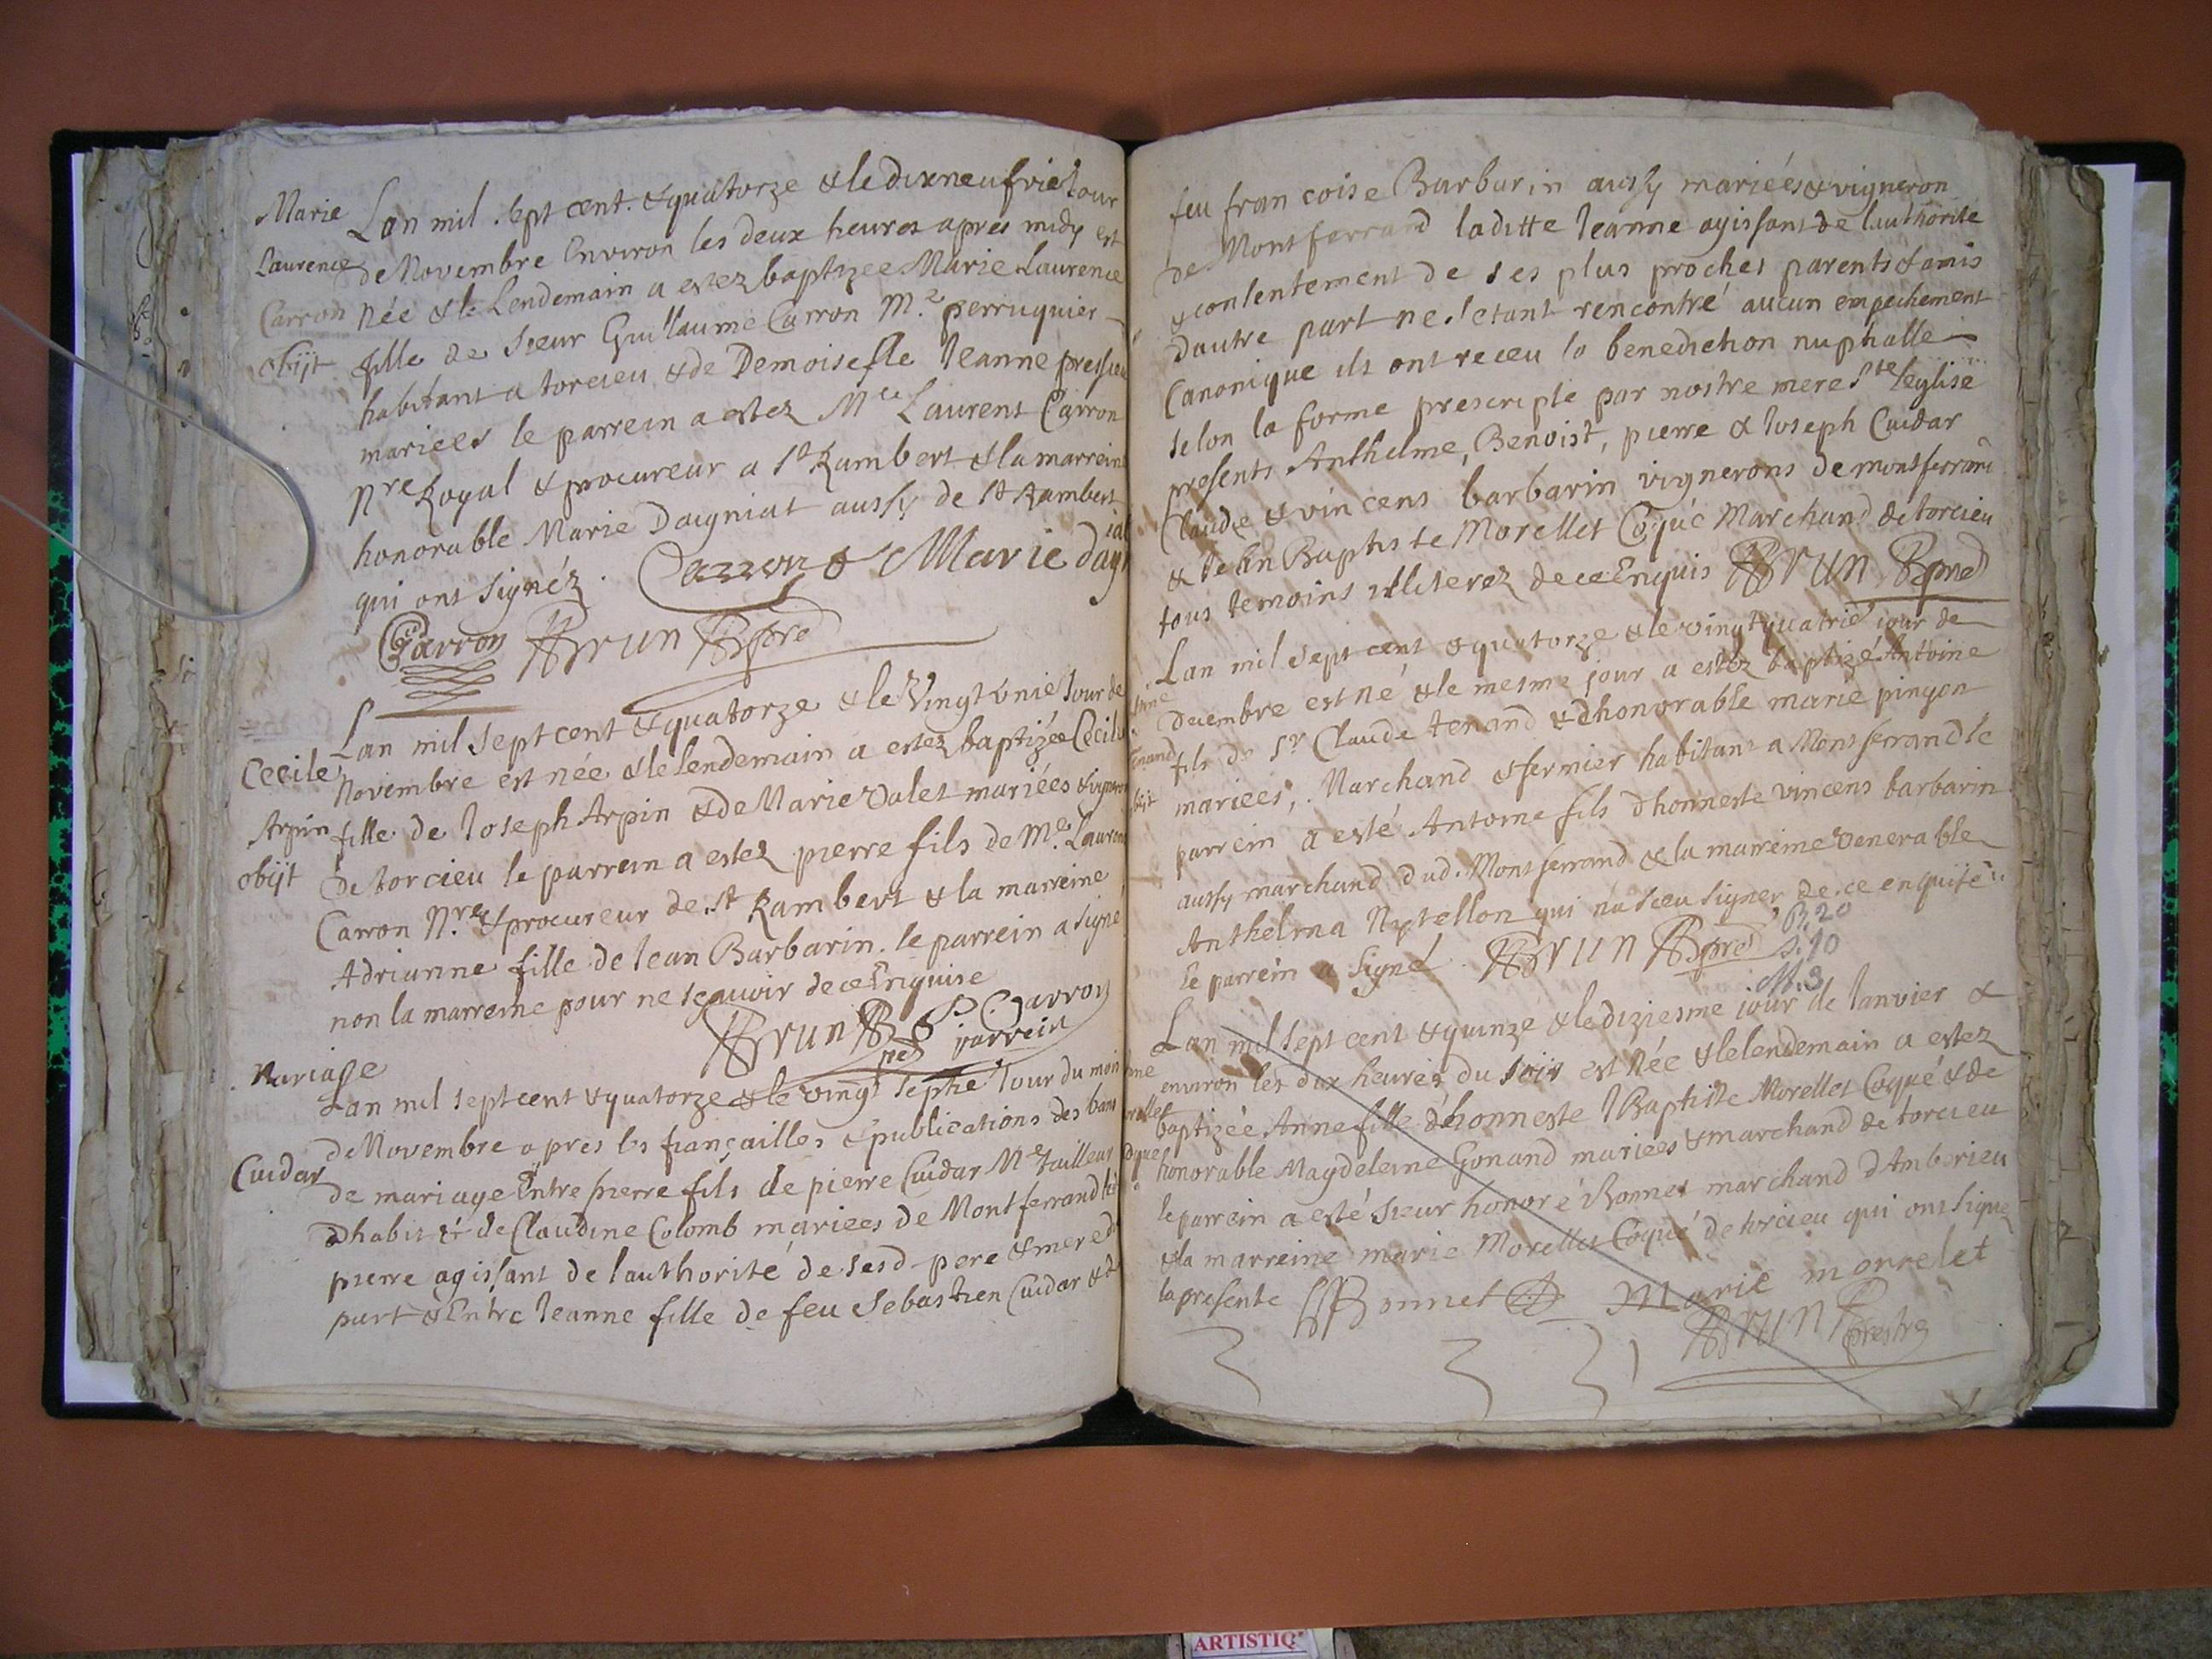 Marie
Laurence
Carron
obijt
Lan mil sept cent & quatorze & le dixneufvie Jour
de Novembre Environ les deux heures apres midy est
Née & le Lendemain a estez baptizee Marie Laurence
fille de Sieur Guillaume Carron Me perruquier
habitant a torcieu & de Demoiselle Jeanne
mariees le parrein a estez Mre Laurent Carron
Nre Royal & procureur a St Rambert & la marreine
honorable Marie Daigniat aussy de St Rambert
qui ont signéz. Carron Marie
Carron Brun pre
Cecile
Arpin
obijt
Lan mil sept cent & quatorze & le Vingt Jour de
Novembre est née & le lendemain a estez baptizée Cecile
fille de Joseph Arpin & de Marie Valet mariées &
de torcieu le parrein a estez pierre fils de Me
Carron Nre & procureur de St Rambert & la marreine
Adrianne fille de Jean Barbarin. le parrein a signe
non la marreine pour ne scauoir de ce Enquise
Brun P Carron
parrein
Mariage
Cuidar
Lan mil sept cent & quatorze & le vingt septie Jour du mois
de Novembre apres les françailles & publications des bans
de mariage Entre pierre fils de pierre Cuidar Me tailleur
dhabit & de Claudine Colomb mariees de Montferrand
pierre agissant de lauthorité de sesd pere & mere
part & Entre Jeanne fille de feu Sebastien Cuidar &
feu francoise Barbarin aussy mariées & vigneron
de Montferrand laditte Jeanne agissant de lauthorité
& contentement de ses plus proches parents & amis
dautre part ne setant rencontré aucun empechement
Canonique ils ont receu la benediction nuptialle
selon la forme prescripte par nostre mere Ste leglise
presents Anthelme, Benoist, pierre & Joseph Cuidar
Claude & vincens barbarin vignerons de montferrand
& Jean Baptiste Morellet Coqué Marchand de torcieu
tous temoins illiterez de ce Enquis Brun pre
Lan mil sept cent & quatorze & le vingt quatrie jour de
decembre est né & le mesme jour a estez baptizé Antoine
fils de Sr Claude tenand & dhonorable marie pingon
mariees, Marchand & fermier habitant a Montferrand le
parrein a esté Antoine fils dhonneste vincens barbarin
aussy marchand dud. Montferrand & la marreine venerable
Anthelma Nytellon qui na sceu signer de ce enquise
le parrein a signé Brun pre
B. 20
S. 10
M. 3
Lan mil sept cent & quinze & le diziesme jour de Janvier &
environ les dix heures du soir est née & le lendemain a estez
baptizée Anne fille dhonneste JBaptiste Morellet Coqué & de
honorable Magdeleine Gonand mariees & marchand de torcieu
le parrein a esté Sieur honoré Bonnet marchand dAmberieu
& la marreine marie Morellet Coqué de torcieu qui ont signez
la presente Bonnet Marie morrelet
Brun prestre
ARTISTIQ